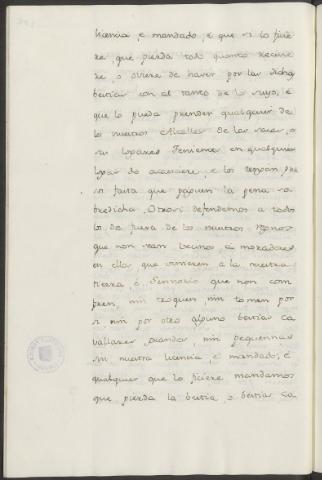 licencia, é mandado, é que si lo ficie
re que pierda todo quanto recivie
re, o oviere de haver por las dichas
bestias con al tanto de lo suyo, é
que lo pueda prender qualquier de
los nuestros Alcalles de las sacas, o
su lugares Teniente en qualquier
logar do acaeciere, e los tengan, des
si fasta que paguen la pena so
bredicha. Otrosi defendemos a todos
los de fuera de los nuestros Regnos
que non sean vecinos, o moradores
en ellos, que vinieren a la nuestra
tierra, é Sennorio que non com
pren, nin troquen, nin tomen por
si nin por otro alguno bestias ca
vallares grandes, nin pequennas
sin nuestra licencia, é mandado, é
qualquier que lo ficiere mandamos
que pierda la bestia, o bestias ca